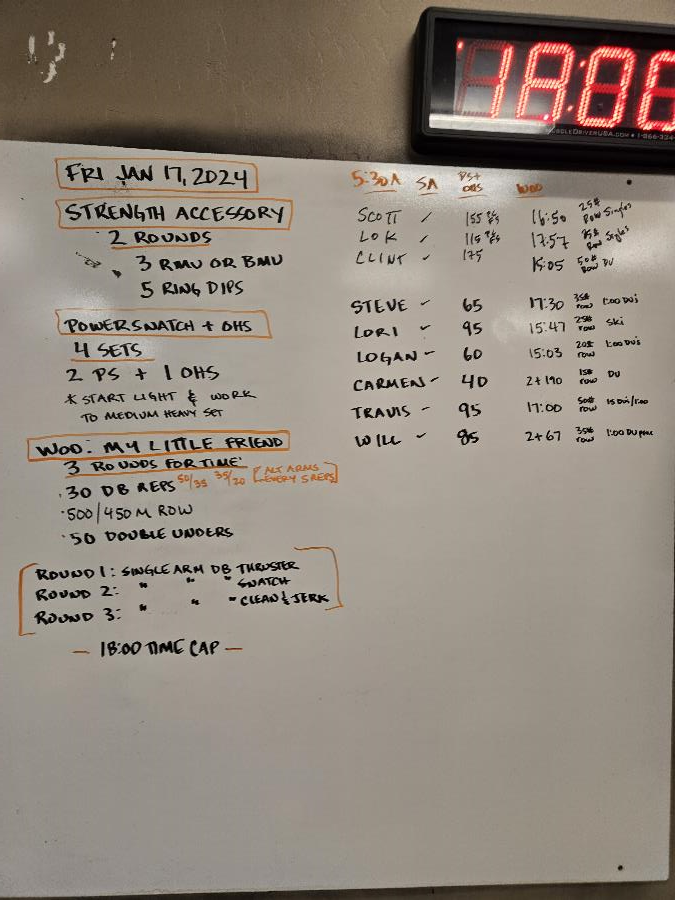 18:00
MUSCLEDRIVERUSA.COM • 1-866-334
FRI JAN 17, 2024
STRENGTH ACCESSORY
2 ROUNDS
3 RMU OR BMU
5 RING DIPS
POWERSNATCH + OHS
4 SETS
2 PS + 1 OHS
* START LIGHT & WORK
TO MEDIUM HEAVY SET
WOD: MY LITTLE FRIEND
3 ROUNDS FOR TIME
· 30 DB REPS 50/35 35/20 [ALT ARMS EVERY 5 REPS]
· 500/450 M ROW
· 50 DOUBLE UNDERS
ROUND 1: SINGLE ARM DB THRUSTER
ROUND 2: " " " SNATCH
ROUND 3: " " " CLEAN & JERK
— 18:00 TIME CAP —
5:30A SA PS+ OHS WOD
SCOTT ✓ 155 16:50 25# Row Singles
LOK ✓ 115 17:57 35# Row Singles
CLINT ✓ 175 15:05 50# Row DU
STEVE ✓ 65 17:30 35# row 1:00 DU's
LORI ✓ 95 15:47 25# row Ski
LOGAN ✓ 60 15:03 20# row 1:00 DU's
CARMEN ✓ 40 2+190 15# row DU
TRAVIS ✓ 95 17:00 50# row 15 DU's/1:00
WILL ✓ 85 2+67 35# row 1:00 DU